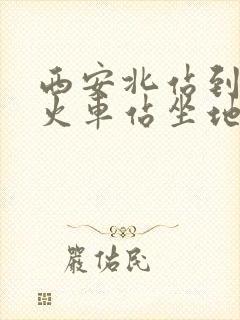 西安北佔到
火車佔坐地
嚴佑民